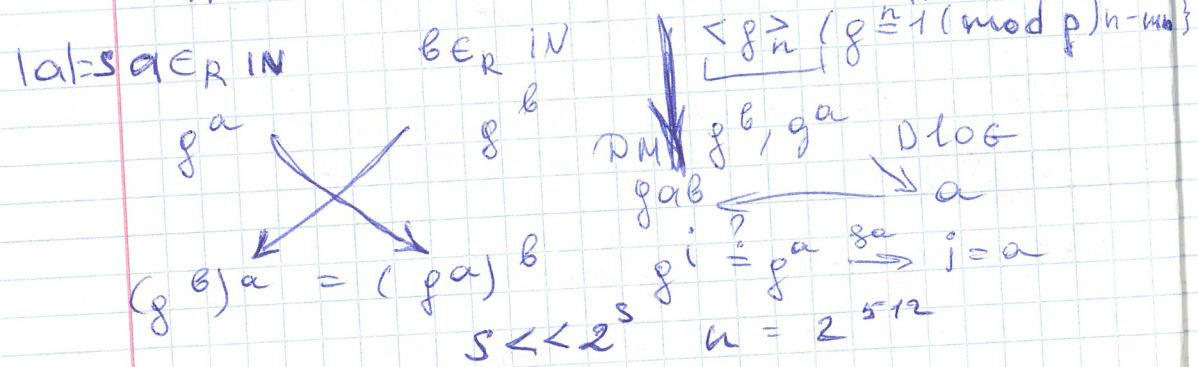 |a|=s a∈_R ℕ b∈_R ℕ <g>_n (g^n=1 (mod p) n-min}
g^a g^b DH g^b, g^a DlOG
g^{ab} a
(g^b)^a = (g^a)^b g^i ?= g^a да→ i=a
s<<2^s n = 2^512